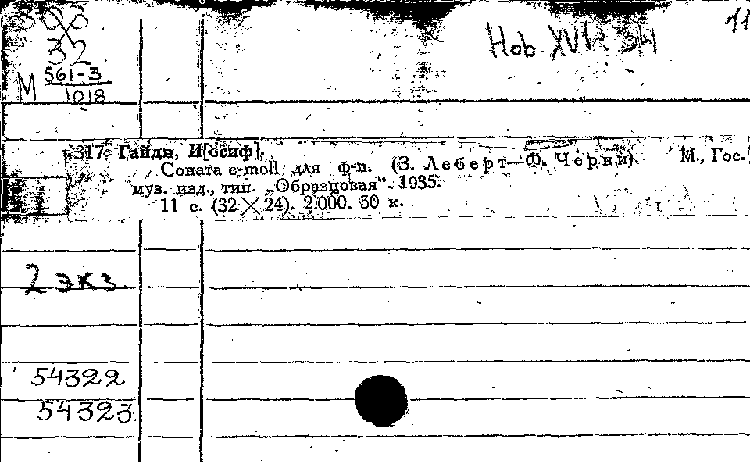 32
М 561-3
1018
Hob XVI: 34
11
317. Гайдн, И[осиф].
Соната e-moll для ф-п. (З. Леберт—Ф. Черни). М., Гос.
муз. изд., тип. „Образцовая“. 1935.
11 с. (32×24). 2.000. 50 к.
2 экз.
54322
54323